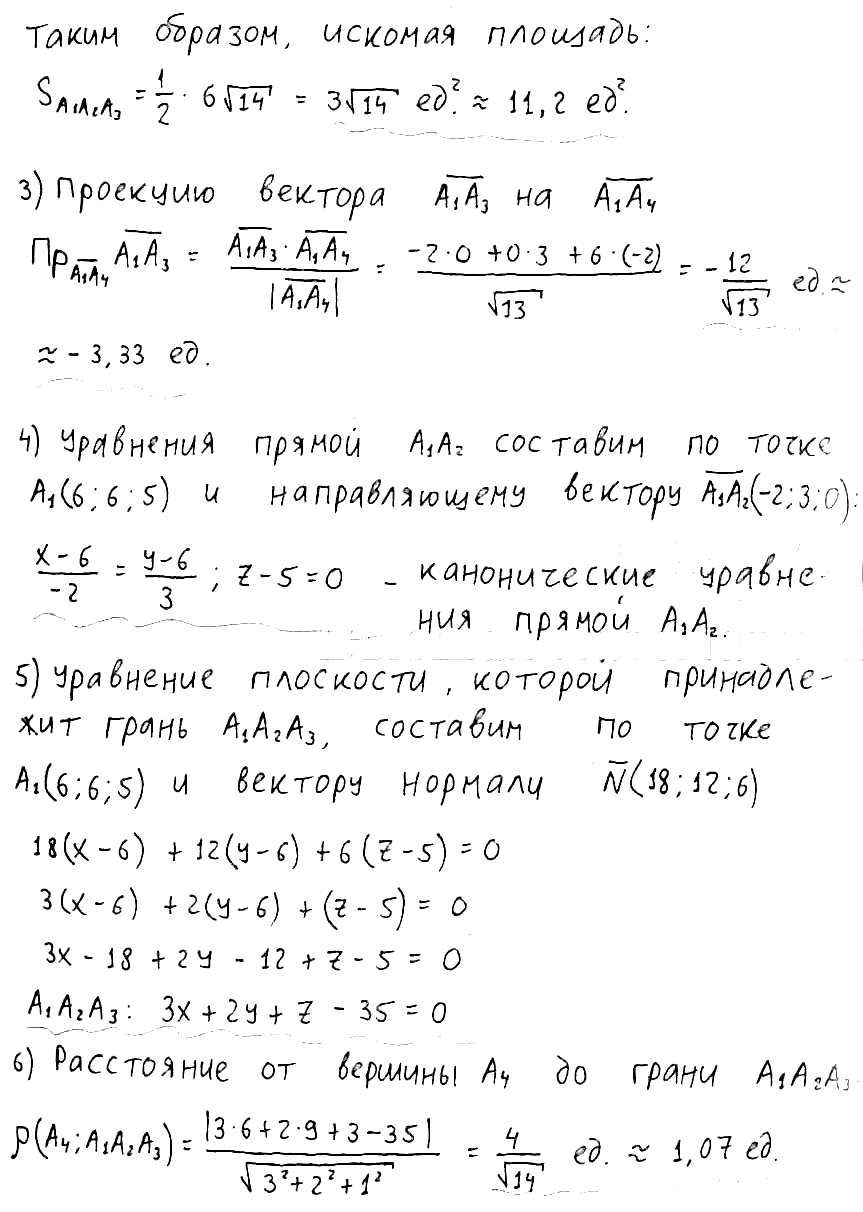 Таким образом, искомая площадь:
S_{A₁A₂A₃} = 1/2 · 6√14 = 3√14 ед.² ≈ 11,2 ед².
3) Проекцию вектора A₁A₃ на A₁A₄
Пр_{A₁A₄} A₁A₃ = (A₁A₃ · A₁A₄)/|A₁A₄| = (-2·0 + 0·3 + 6·(-2))/√13 = -12/√13 ед. ≈
≈ - 3,33 ед.
4) Уравнения прямой A₁A₂ составим по точке
A₁(6; 6; 5) и направляющему вектору A₁A₂(-2; 3; 0):
(x-6)/-2 = (y-6)/3 ; z-5=0 - канонические уравне-
ния прямой A₁A₂.
5) Уравнение плоскости, которой принадле-
жит грань A₁A₂A₃, составим по точке
A₁(6; 6; 5) и вектору нормали N(18; 12; 6)
18(x-6) + 12(y-6) + 6(z-5) = 0
3(x-6) + 2(y-6) + (z-5) = 0
3x - 18 + 2y - 12 + z - 5 = 0
A₁A₂A₃: 3x + 2y + z - 35 = 0
6) Расстояние от вершины A₄ до грани A₁A₂A₃
ρ(A₄; A₁A₂A₃) = |3·6+2·9+3-35|/√(3²+2²+1²) = 4/√14 ед. ≈ 1,07 ед.